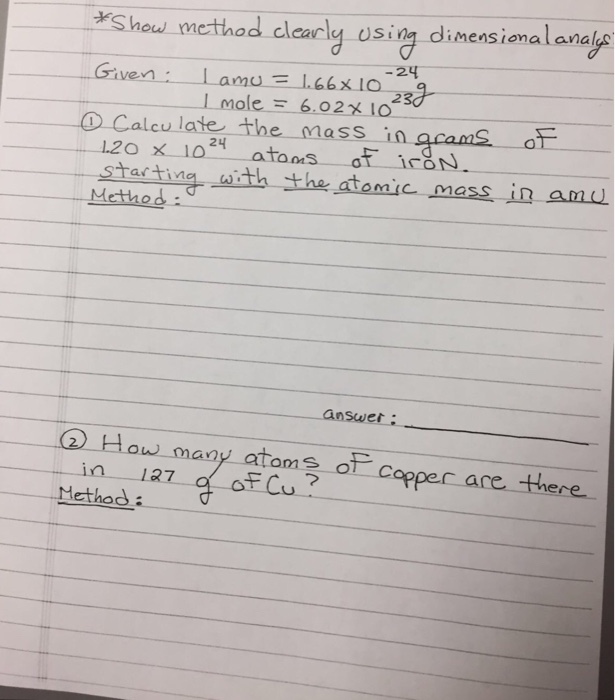 *Show method clearly using dimensional analys
Given: 1 amu = 1.66 x 10⁻²⁴ g
1 mole = 6.02 x 10²³
① Calculate the mass in grams of
1.20 x 10²⁴ atoms of iroN.
starting with the atomic mass in amu
Method:
answer:
② How many atoms of copper are there
in 127 g of Cu?
Method: